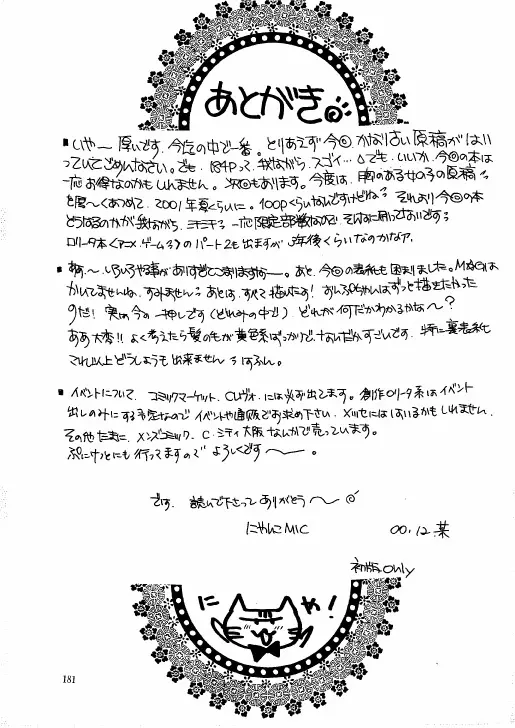 あとがき
■いや〜 厚いです。今迄の中で一番。とりあえず今回 かなり古い原稿がはい
っていてごめんなさい。でも、184Pって、我ながらスゴイ… でも、いいか、今回の本は
一応お得なのかもしれません。次回もあります。今度は、胸のある女の子の原稿
を 2001年夏くらいに。100pくらいなんですけどね それより今回の本
どうなるのかが我ながら 一応限定部数なので
ロリータ本〈アニメ・ゲーム〉のパート2も出ますが 年後くらいなのかなァ.
■ あと、今回の表紙も困りました。
かいてませんね、すみません あとは、すべて描いた! おんぷちゃんはずっと描きたかった
のだ! 実は今の一押しです(どれみの中で) どれが何だかわかるかな〜?
ああ大変!! よく考えたら髪の毛が黄色系ばっかりで 特に裏表紙
これ以上どうしようも出来ません
■ イベントについて、コミックマーケット、Cレヴォ、には必ず出てます。創作ロリータ系はイベント
出しのみにする予定なので イベントや通販でお求め下さい。メッセにははいるかもしれません。
その他たまに、メンズコミック、C.シティ大阪なんかで売っています。
ぷにケットにも行ってますので よろしくです〜。
では、読んで下さって ありがとう〜
にゃんこMIC 00.12.某
初版only
にゃ!
181